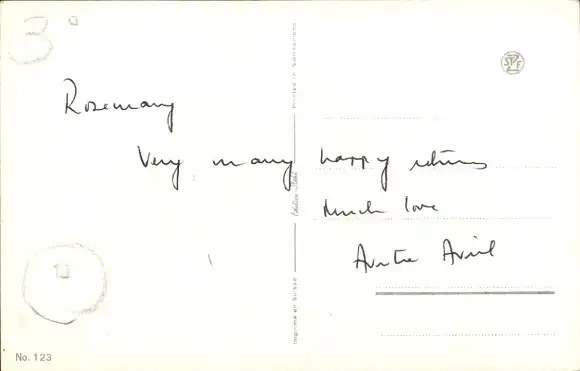 3
Rosemary
Very many happy returns
Much love
Auntie Avril
Printed in Switzerland
Edition Stehli
Imprimé en Suisse
No. 123